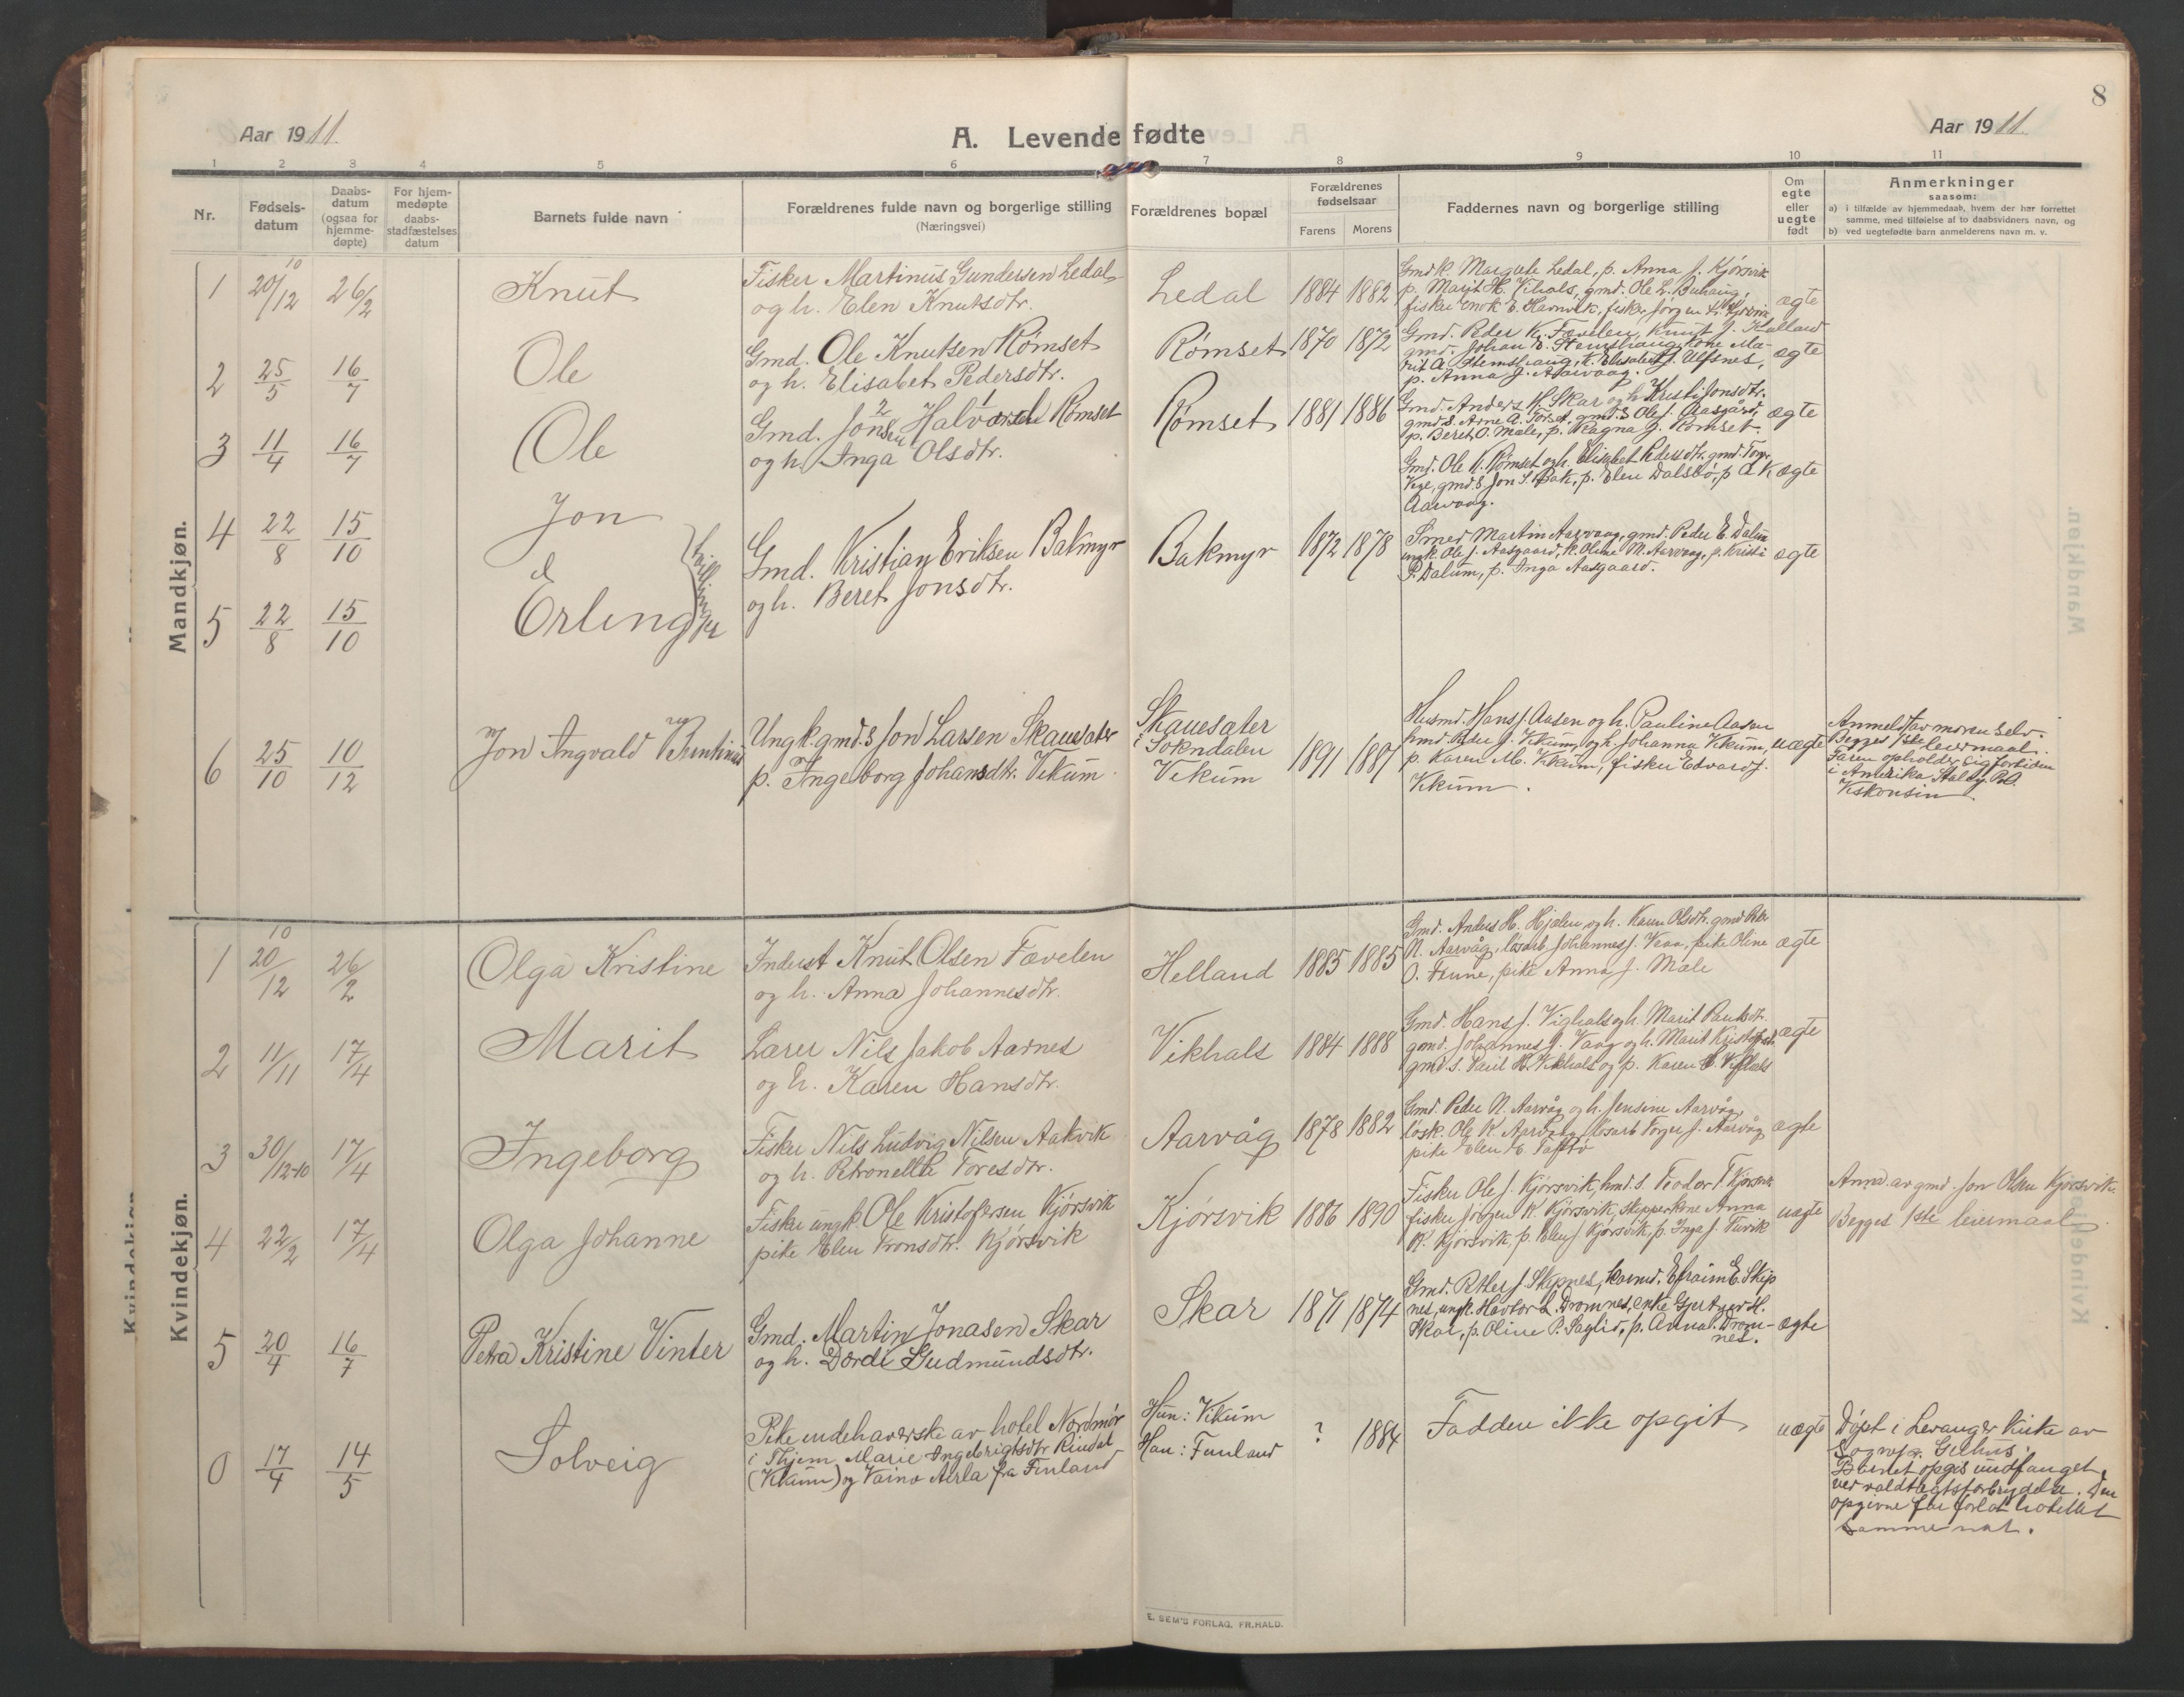 8
Aar 1911.
A. Levende fødte
Aar 1911.
1 2 3 4 5 6 7 8 9 10 11
Nr.
Fødsels-
datum
Daabs-
datum
(ogsaa for
hjemme-
døpte)
For hjem-
medøpte
daabs-
stadfæstelses
datum
Barnets fulde navn
Forældrenes fulde navn og borgerlige stilling
(Næringsvei)
Forældrenes bopæl
Forældrenes
fødselsaar
Farens Morens
Faddernes navn og borgerlige stilling
Om
egte
eller
uegte
født
Anmerkninger
saasom:
a) i tilfælde av hjemmedaab, hvem der har forrettet
samme, med tilføielse af to daabsvidners navn, og
b) ved uegtefødte barn anmelderens navn m. v.
Mandkjøn.
1 20/12 10 26/2
Knut
Fisker Martinus Gundersen Ledal
og h. Elen Knutsdtr.
Ledal 1884 1882
Gmdk. Margrete Ledal, p. Anna J. Kjørsvik
p. Marit H. Vikals, gmd. Ole L. Buhaug,
fisker Enok E. Havnvik, fisker Jørgen K. Kjørsvik
ægte
2 25/5 16/7
Ole
Gmd. Ole Knutsen Rømset
og h. Elisabet Pedersdtr.
Rømset 1870 1872
Gmd. Peder K. Fævelen, Knut J. Kalland
gmd. Johan E. Stemshaug, kone Ma-
rit A. Stemshaug, k. Elisabet J. Ulfsnes,
p. Anna J. Aarvaag.
ægte
3 11/4 16/7
Ole
Gmd. Jonsen 2 Halvard 1 Rømset
og h. Inga Olsdtr.
Rømset 1881 1886
Gmd. Anders H. Skar og h. Kristi Jonsdtr.
gmd.s. Arne A. Torset, gmd.s Ole J. Aasgård,
p. Beret O. Mæle, p. Ragna J. Rømset.
ægte
4 22/8 15/10
Jon
Gmd. Ole K. Rømset og h. Elisabet Pedersdtr. gmd. Torger
Vege, gmd.s Jon S. Bak, p. Elen Dalsbø, p. A K
Aarvaag.
ægte
&
tvillinger
Gmd. Kristian Eriksen Bakmyr
og h. Beret Jonsdtr.
Bakmyr 1872 1878
5 22/8 15/10
Erling
Smed Martin Aarvaag, gmd. Peder E. Dalum
ungk. Ole J. Aasgaard, k. Oline N. Aarvaag, p. Kristi
P. Dalum, p. Inga Aasgaard.
ægte
6 25/10 10/12
Jon Ingvald Valentinus
Ungk. gmd.s Jon Larsen Skauesæter
p. Ingeborg Johansdtr. Vikum
Skauesæter
i Soknedalen
Vikum
1891 1887
Husmd. Hans J. Aasen og h. Pauline Aasen
hmd. Peder J. Vikum, og h. Johanna Vikum,
p. Karen M. Vikum, fisker Edvard J.
Vikum.
uægte
Anmeldt av moren selv.
Begges 1ste leiermaal.
Faren opholder sig fortiden
i Amerika, Staley P.O.
Viskonsin
Kvindekjøn.
1 20/12 10 26/2
Olga Kristine
Inderst Knut Olsen Fævelen
og h. Anna Johannesdtr.
Helland 1885 1885
Gmd. Anders H. Hjælen og h. Karen Olsdtr. gmd Peder
N. Aarvåg, løsarb. Johannes J. Veaa, pike Oline
O. Fenne, pike Anna J. Mæle
ægte
2 11/11 17/4
Marit
Lærer Nils Jakob Aarnes
og h. Karen Hansdtr.
Vikhals 1884 1888
Gmd. Hans J. Vighals og h. Marit Paulsdtr.
gmd. Johannes J. Vaag og h. Marit Kristofersdtr
gmd.s. Paul H. Vikhals og p. Karen H. Vikhals
ægte
3 30/12-10 17/4
Ingeborg
Fisker Nils Ludvig Nilsen Aakvik
og h. Petronelle Toresdtr.
Aarvåg 1878 1882
Gmd. Peder N. Aarvåg og h. Jensine Aarvåg,
løsk. Ole K. Aarvaag, løsarb Torger J. Aarvåg
pike Elen E. Taftø
ægte
4 22/2 17/4
Olga Johanne
Fisker ungk. Ole Kristofersen Kjørsvik
pike Elen Tronsdtr. Kjørsvik
Kjørsvik 1886 1890
Fisker Ole J. Kjørsvik, hmd.s. Teodor T. Kjørsvik
fisker Jørgen K. Kjørsvik, skipperkone Anna
K. Kjørsvik, p. Elen J. Kjørsvik, p. Inga J. Tevik
uægte
Anm. av gmd. Jon Olsen Kjørsvik.
Begges 1ste leiermaal
5 20/4 16/7
Petra Kristine Vinter
Gmd. Martin Jonasen Skar
og h. Dordi Gudmundsdtr.
Skar 1871 1874
Gmd. Peder J. Skipnes, kaarmd. Efraim E. Skip
nes, ungk. Havtor L. Dromnes, enke Gjertrud H.
Skar, p. Oline P. Saglid, p. Anna Drom-
nes.
ægte
0 17/4 14/5
Solveig
Pike indehaverske av hotel Nordmør
i Thjem Marie Ingebrigtsdtr Rindal
(Vikum) og Vaino Aerla fra Finland
Hun: Vikum
Han: Finland
? 1884
Faddere ikke opgit
uægte
Døpt i Levanger kirke av
Sognepr. Gilhus.
Barnet opgis undfanget
ved voldtægtsforbrydelse. Den
opgivne far forlot hotellet
samme nat.
E. SEM'S FORLAG, FR.HALD.
Kvindekjøn